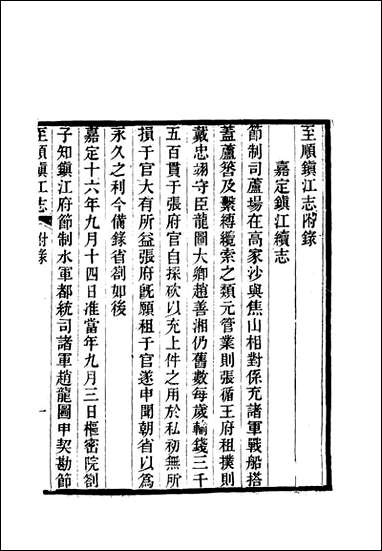 至順鎮江志附錄
嘉定鎮江續志
節制司蘆場在高家沙與焦山相對係充諸軍戰船搭
蓋蘆䉬及繫縛纜索之類元管業則張循王府租撲則
戴忠翊守臣龍圖大卿趙善湘仍舊數每歲輸錢三千
五百貫于張府官自採斫以充上件之用於私初無所
損于官大有所益張府旣願租于官遂申聞朝省以爲
永久之利今備錄省劄如後
嘉定十六年九月十四日准當年九月三日樞密院劄
子知鎮江府節制水軍都統司諸軍趙龍圖申契勘節
至順鎮江志 附錄 一